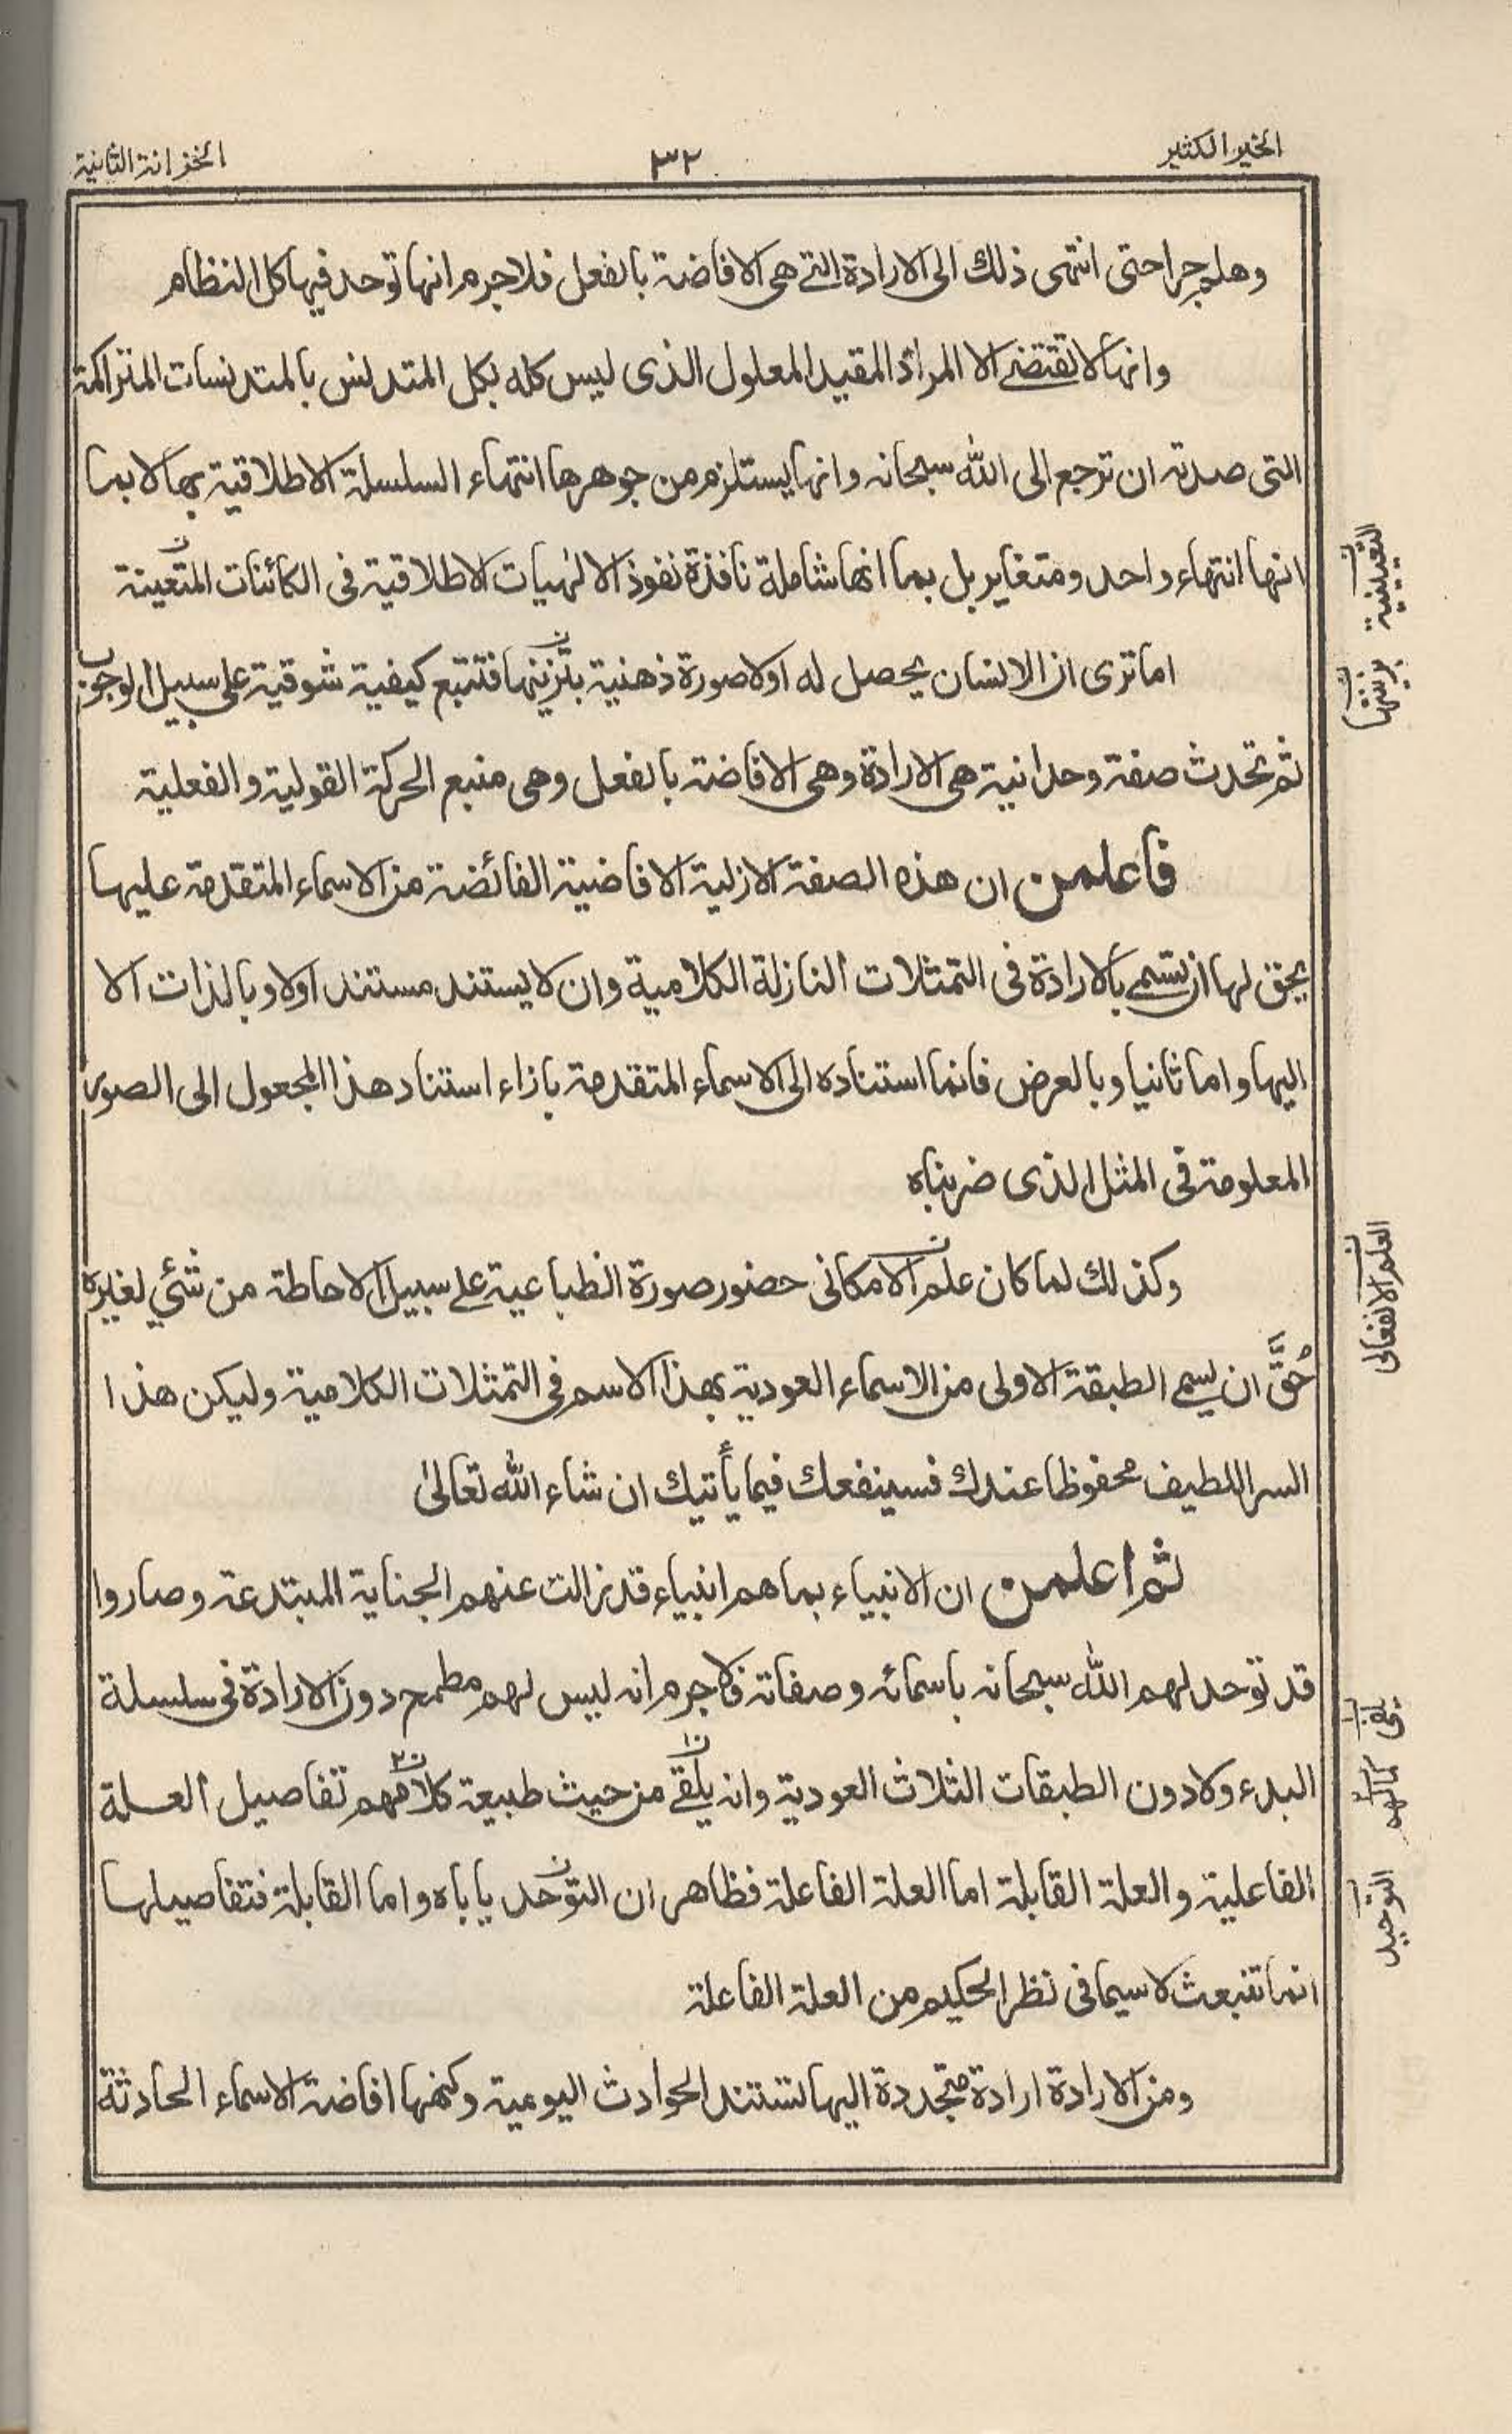 الخير الكثير
٣٢
الخزانة الثانية
وهلم جرا حتى انتهى ذلك الى الارادة التى هى الافاضة بالفعل فلاجرم انها توحد فيها كل النظام
وانها لا تقتضى الا المراد المقيد المعلول الذى ليس كله بكل المتدنس بالمتدنسات المتراكمة
التى صدته ان ترجع الى الله سبحانه وانها يستلزم من جوهرها انتهاء السلسلة الاطلاقية بها لا بما
انها انتهاء واحد ومتغاير بل بما انها شاملة نافذة نفوذ الالٰهيات الاطلاقية فى الكائنات المتعينة
اما ترى ان الانسان يحصل له اولا صورة ذهنية بتزينها فتتبع كيفية شوقية على سبيل الوجوب
ثم تحدث صفة وحدانية هى الارادة وهى الافاضة بالفعل وهى منبع الحركة القولية والفعلية
فاعلمن ان هذه الصفة الازلية الافاضية الفائضة من الاسماء المتقدمة عليها
يحق لها ان تسمى بالارادة فى التمثلات النازلة الكلامية وان لا يستند مستند اولا وبالذات الا
اليها واما ثانيا وبالعرض فانما استناده الى الاسماء المتقدمة بازاء استناد هذا المجعول الى الصور
المعلومة فى المثل الذى ضربناه
وكذلك لما كان علم الامكانى حضور صورة انطباعية على سبيل الاحاطة من شئي لغيره
حُقَّ ان يسمى الطبقة الاولى من الاسماء العودية بهذا الاسم فى التمثلات الكلامية وليكن هذا
السر اللطيف محفوظا عندك فسينفعك فيما يأتيك ان شاء الله تعالىٰ
ثم اعلمن ان الانبياء بما هم انبياء قد زالت عنهم الجناية المبتدعة وصاروا
قد توحد لهم الله سبحانه باسمائه وصفاته فلاجرم انه ليس لهم مطمح دون الارادة فى سلسلة
البدء ولا دون الطبقات الثلاث العودية وانه يلقى من حيث طبيعة كلامهم تفاصيل العلة
الفاعلية والعلة القابلة اما العلة الفاعلة فظاهر ان التوحد ياباه واما القابلة فتفاصيلها
انما تنبعث لا سيما فى نظر الحكيم من العلة الفاعلة
ومن الارادة ارادة متجددة اليها تستند الحوادث اليومية وكنهها افاضة الاسماء الحادثة
العلم الانفعالى
كمالهم
التوحيد